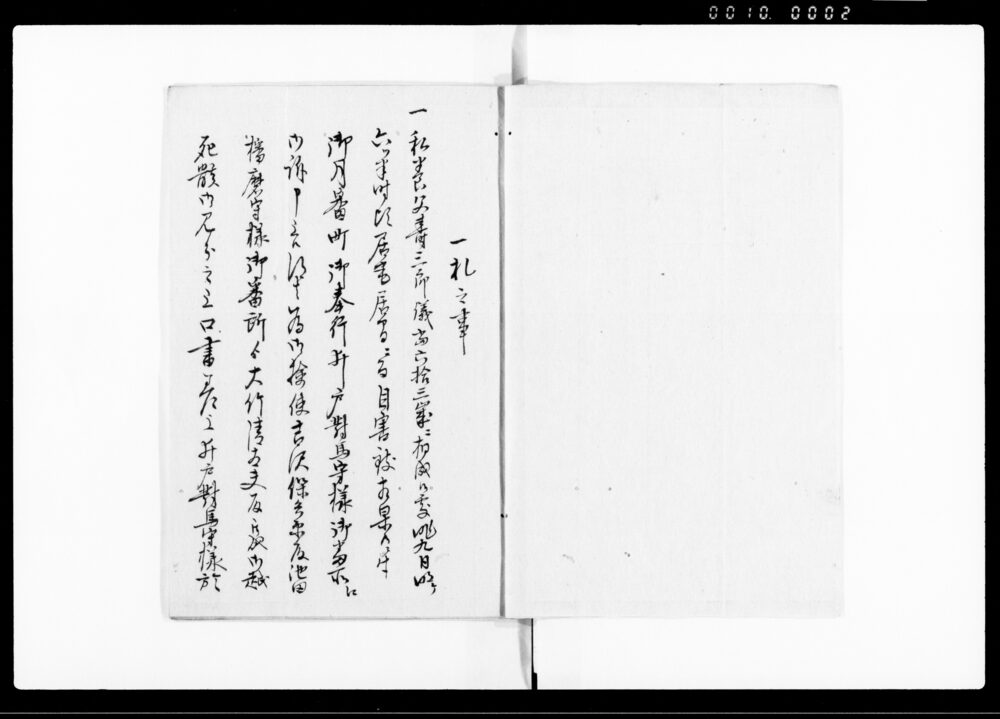 0010 0002
一札之事
一私養父壽三郎儀当六拾三歳ニ相成候処昨九日暁
六半時頃居宅居間ニ而自害致相果候ニ付
御月番町御奉行井戸對馬守様御当所江
御訴申上候得者為御検使吉沢保兵衛殿池田
播磨守様御番所ゟ大竹清太夫殿御越
死骸御見分之上口書差上井戸對馬守様於